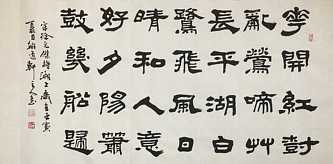 華開紅樹
亂鶯啼艸
長平湖白
鷺飛風日
晴和人意
好夕陽簫
鼓幾船歸
宋徐元傑詩湖上歲在壬寅
夏日